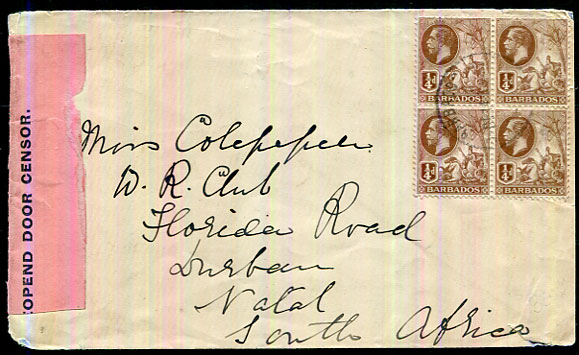 OPEND DOOR CENSOR.
¼d ¼d
BARBADOS BARBADOS
¼d ¼d
BARBADOS BARBADOS
Miss Colepeper
W. R. Club
Florida Road
Durban
Natal
South Africa